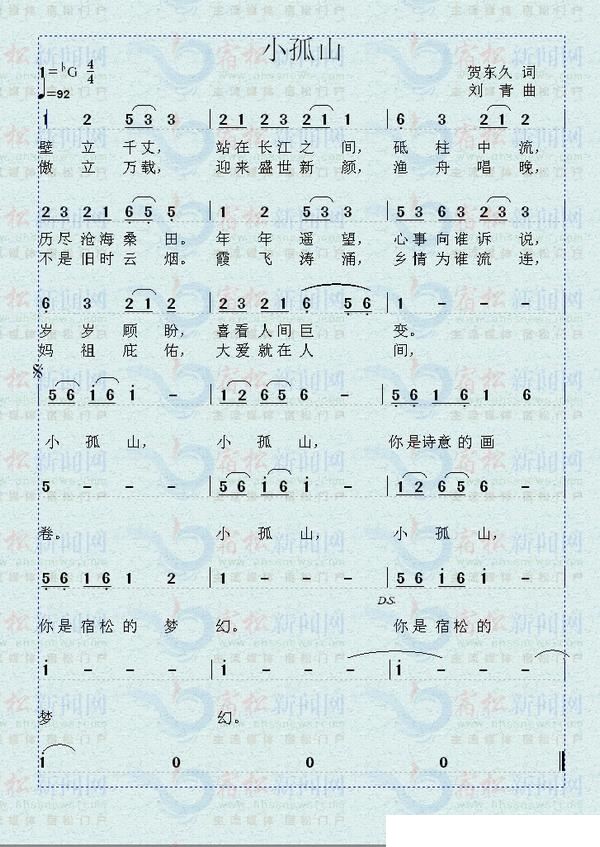 小孤山
1=♭G 4/4
贺东久 词
♩=92
刘 青 曲
1 2 5 3 3 | 2 1 2 3 2 1 1 | 6 3 2 1 2
壁 立 千丈， 站在长江之 间， 砥 柱 中 流，
傲 立 万载， 迎来盛世新 颜， 渔 舟 唱 晚，
2 3 2 1 6 5 5 | 1 2 5 3 3 | 5 3 6 3 2 3 3
历尽沧海桑 田。 年 年 遥 望， 心事向谁诉 说，
不是旧时云 烟。 霞 飞 涛 涌， 乡情为谁流 连，
6 3 2 1 2 | 2 3 2 1 6 5 6 | 1 - -
岁 岁 顾 盼， 喜看人间巨 变。
妈 祖 庇 佑， 大爱就在人 间，
5 6 i 6 i - | 1 2 6 5 6 - | 5 6 1 6 1 6
小 孤 山， 小 孤 山， 你是诗意的画
5 - - - | 5 6 i 6 i - | 1 2 6 5 6 -
卷。 小 孤 山， 小 孤 山，
5 6 1 6 1 2 | 1 - - - | 5 6 i 6 i -
D.S.
你是宿松的 梦 幻。 你是宿松的
i - - - | i - - - | i - - -
梦 幻。
i 0 0 0
宿松新闻网
主流媒体 宿松门户